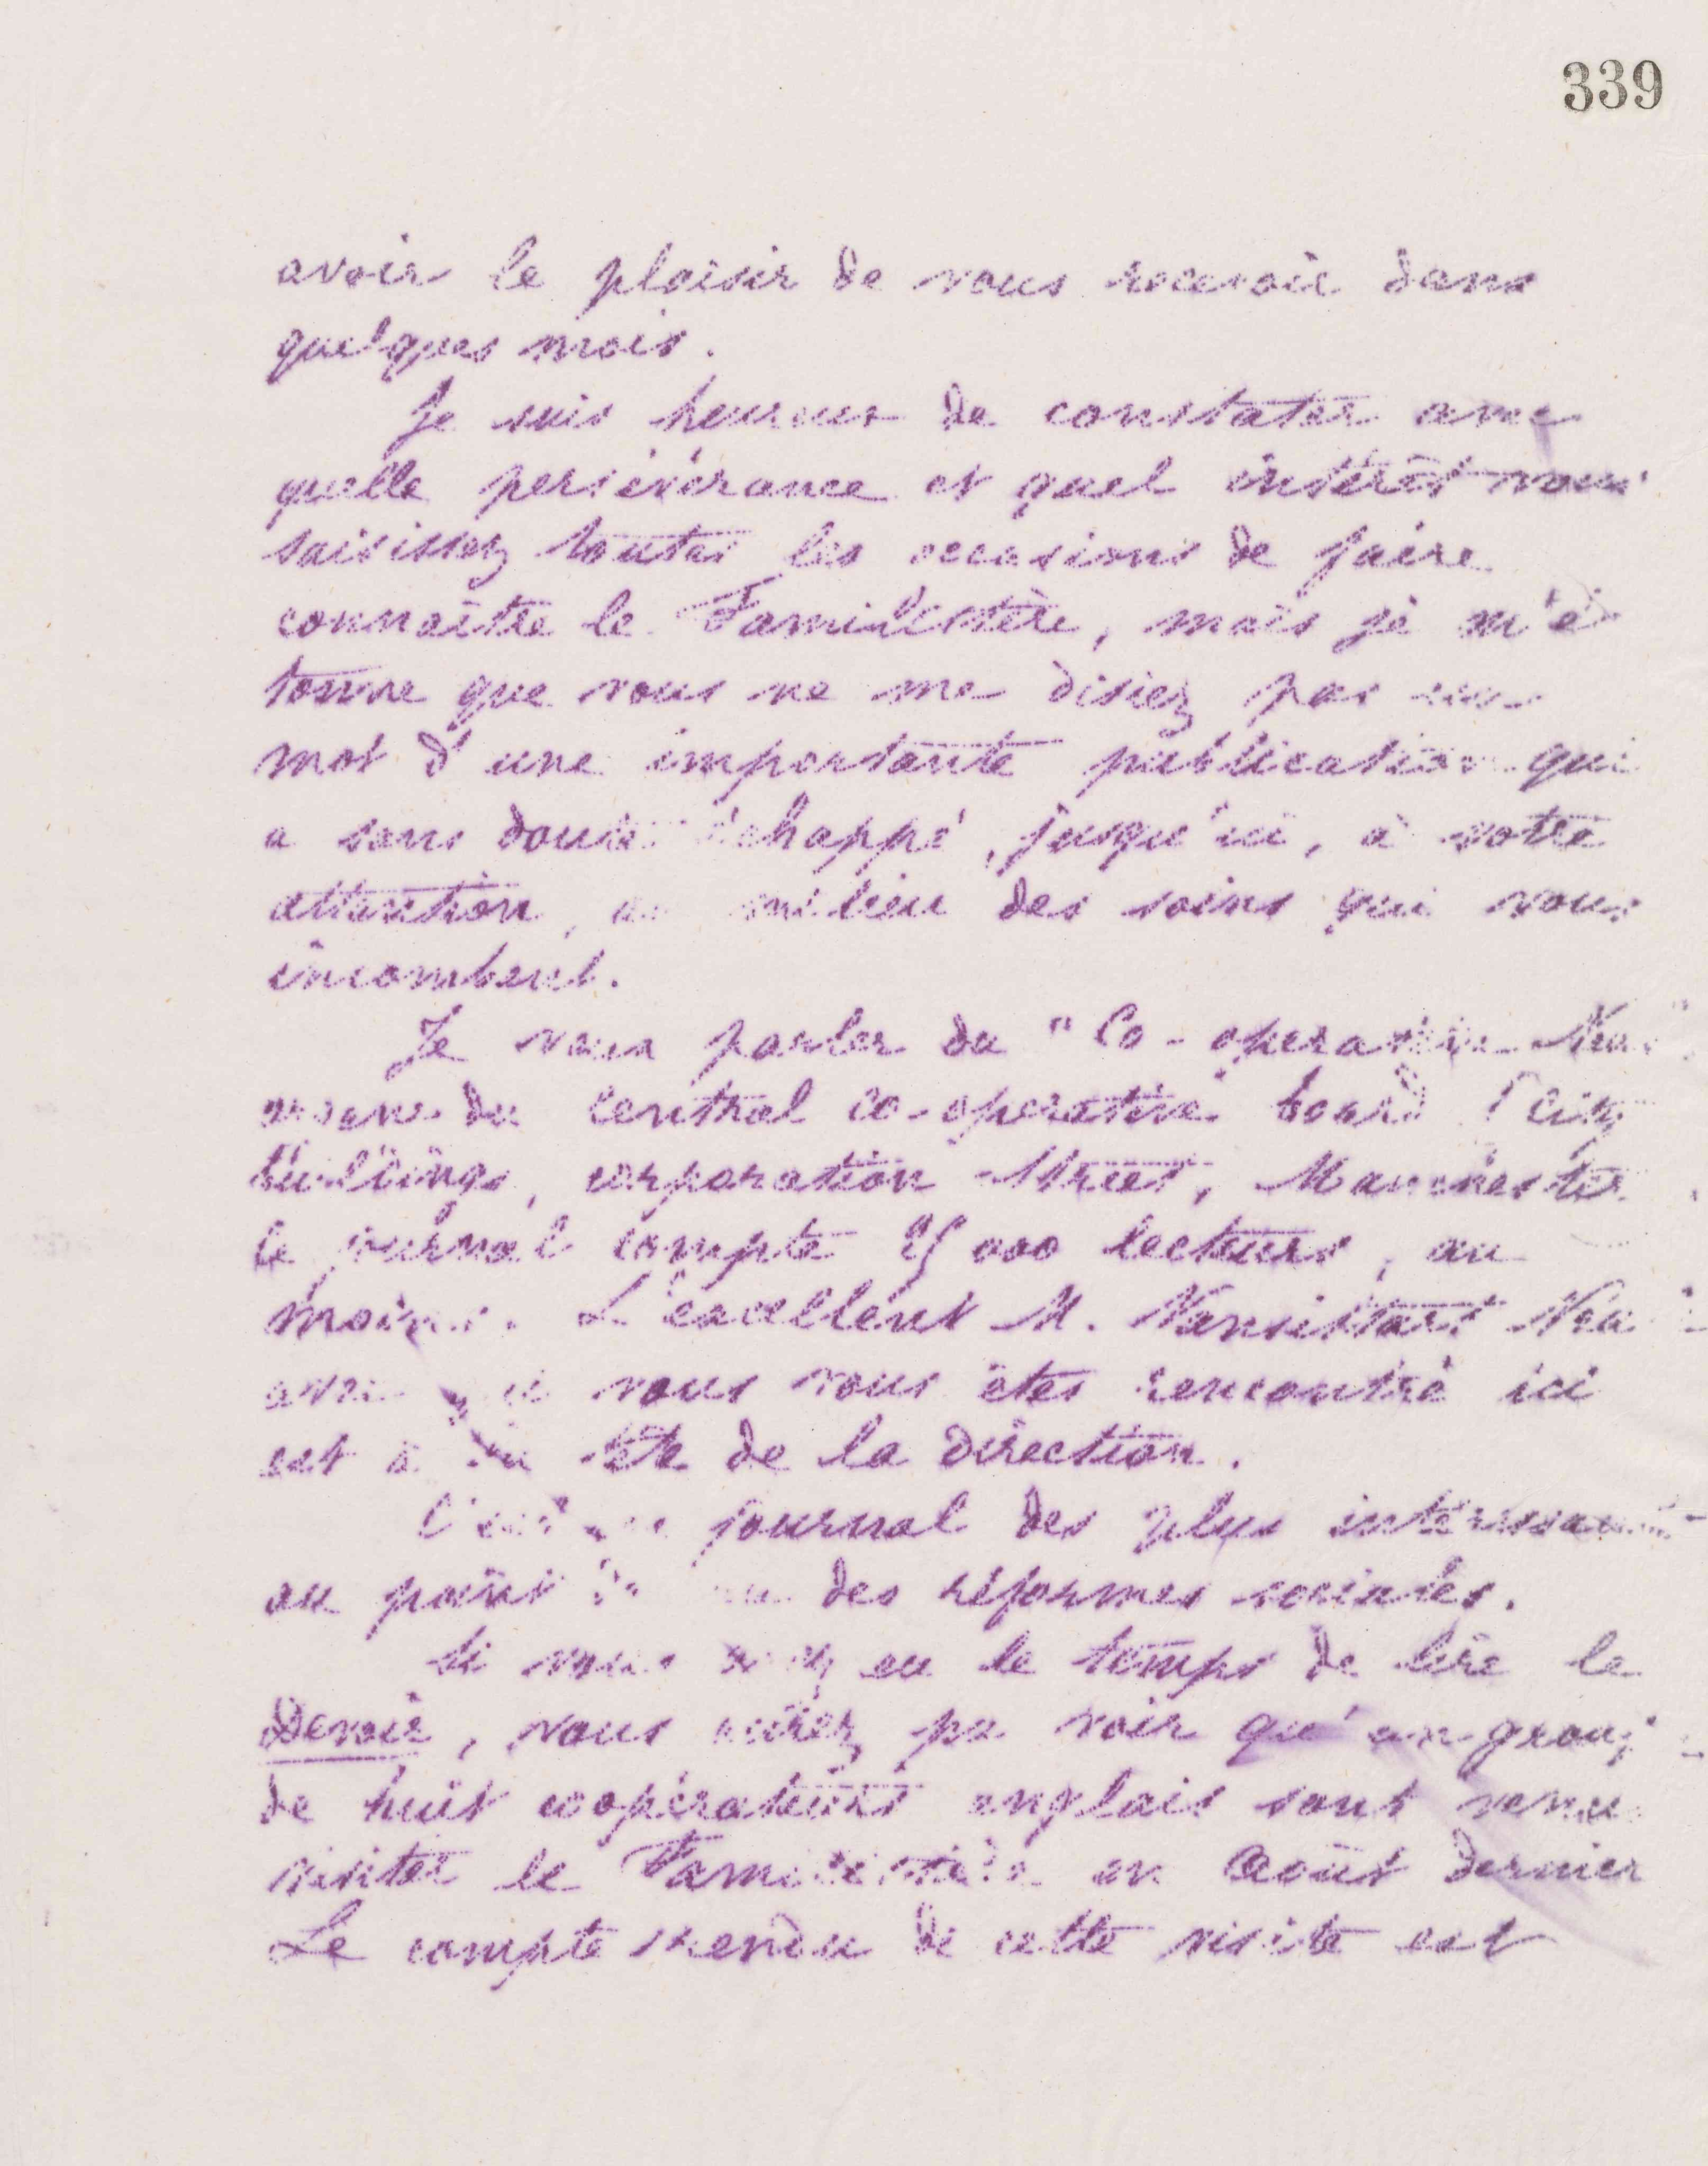 339
avoir le plaisir de vous recevoir dans
quelques mois.
Je suis heureux de constater avec
quelle persévérance et quel intérêt vous
saisissez toutes les occasions de faire
connaître le Familistère, mais je m'é-
tonne que vous ne me disiez pas un
mot d'une importante publication qui
a sans doute échappé, jusqu'ici, à votre
attention, au milieu des soins qui vous
incombent.
Je veux parler du "Co-operative News"
organe du central co-operative board City
buildings, corporation Street, Manchester.
Le journal compte 000 lecteurs, au
moins. L'excellent M. Vansittart Nea
avec qui vous vous êtes rencontré ici
est à la tête de la direction.
C'est un journal des plus intéressants
au point de vue des réformes sociales.
Si vous avez eu le temps de lire le
Devoir, vous aurez pu voir qu'un groupe
de huit coopérateurs anglais sont venus
visiter le Familistère en Août dernier
Le compte rendu de cette visite est